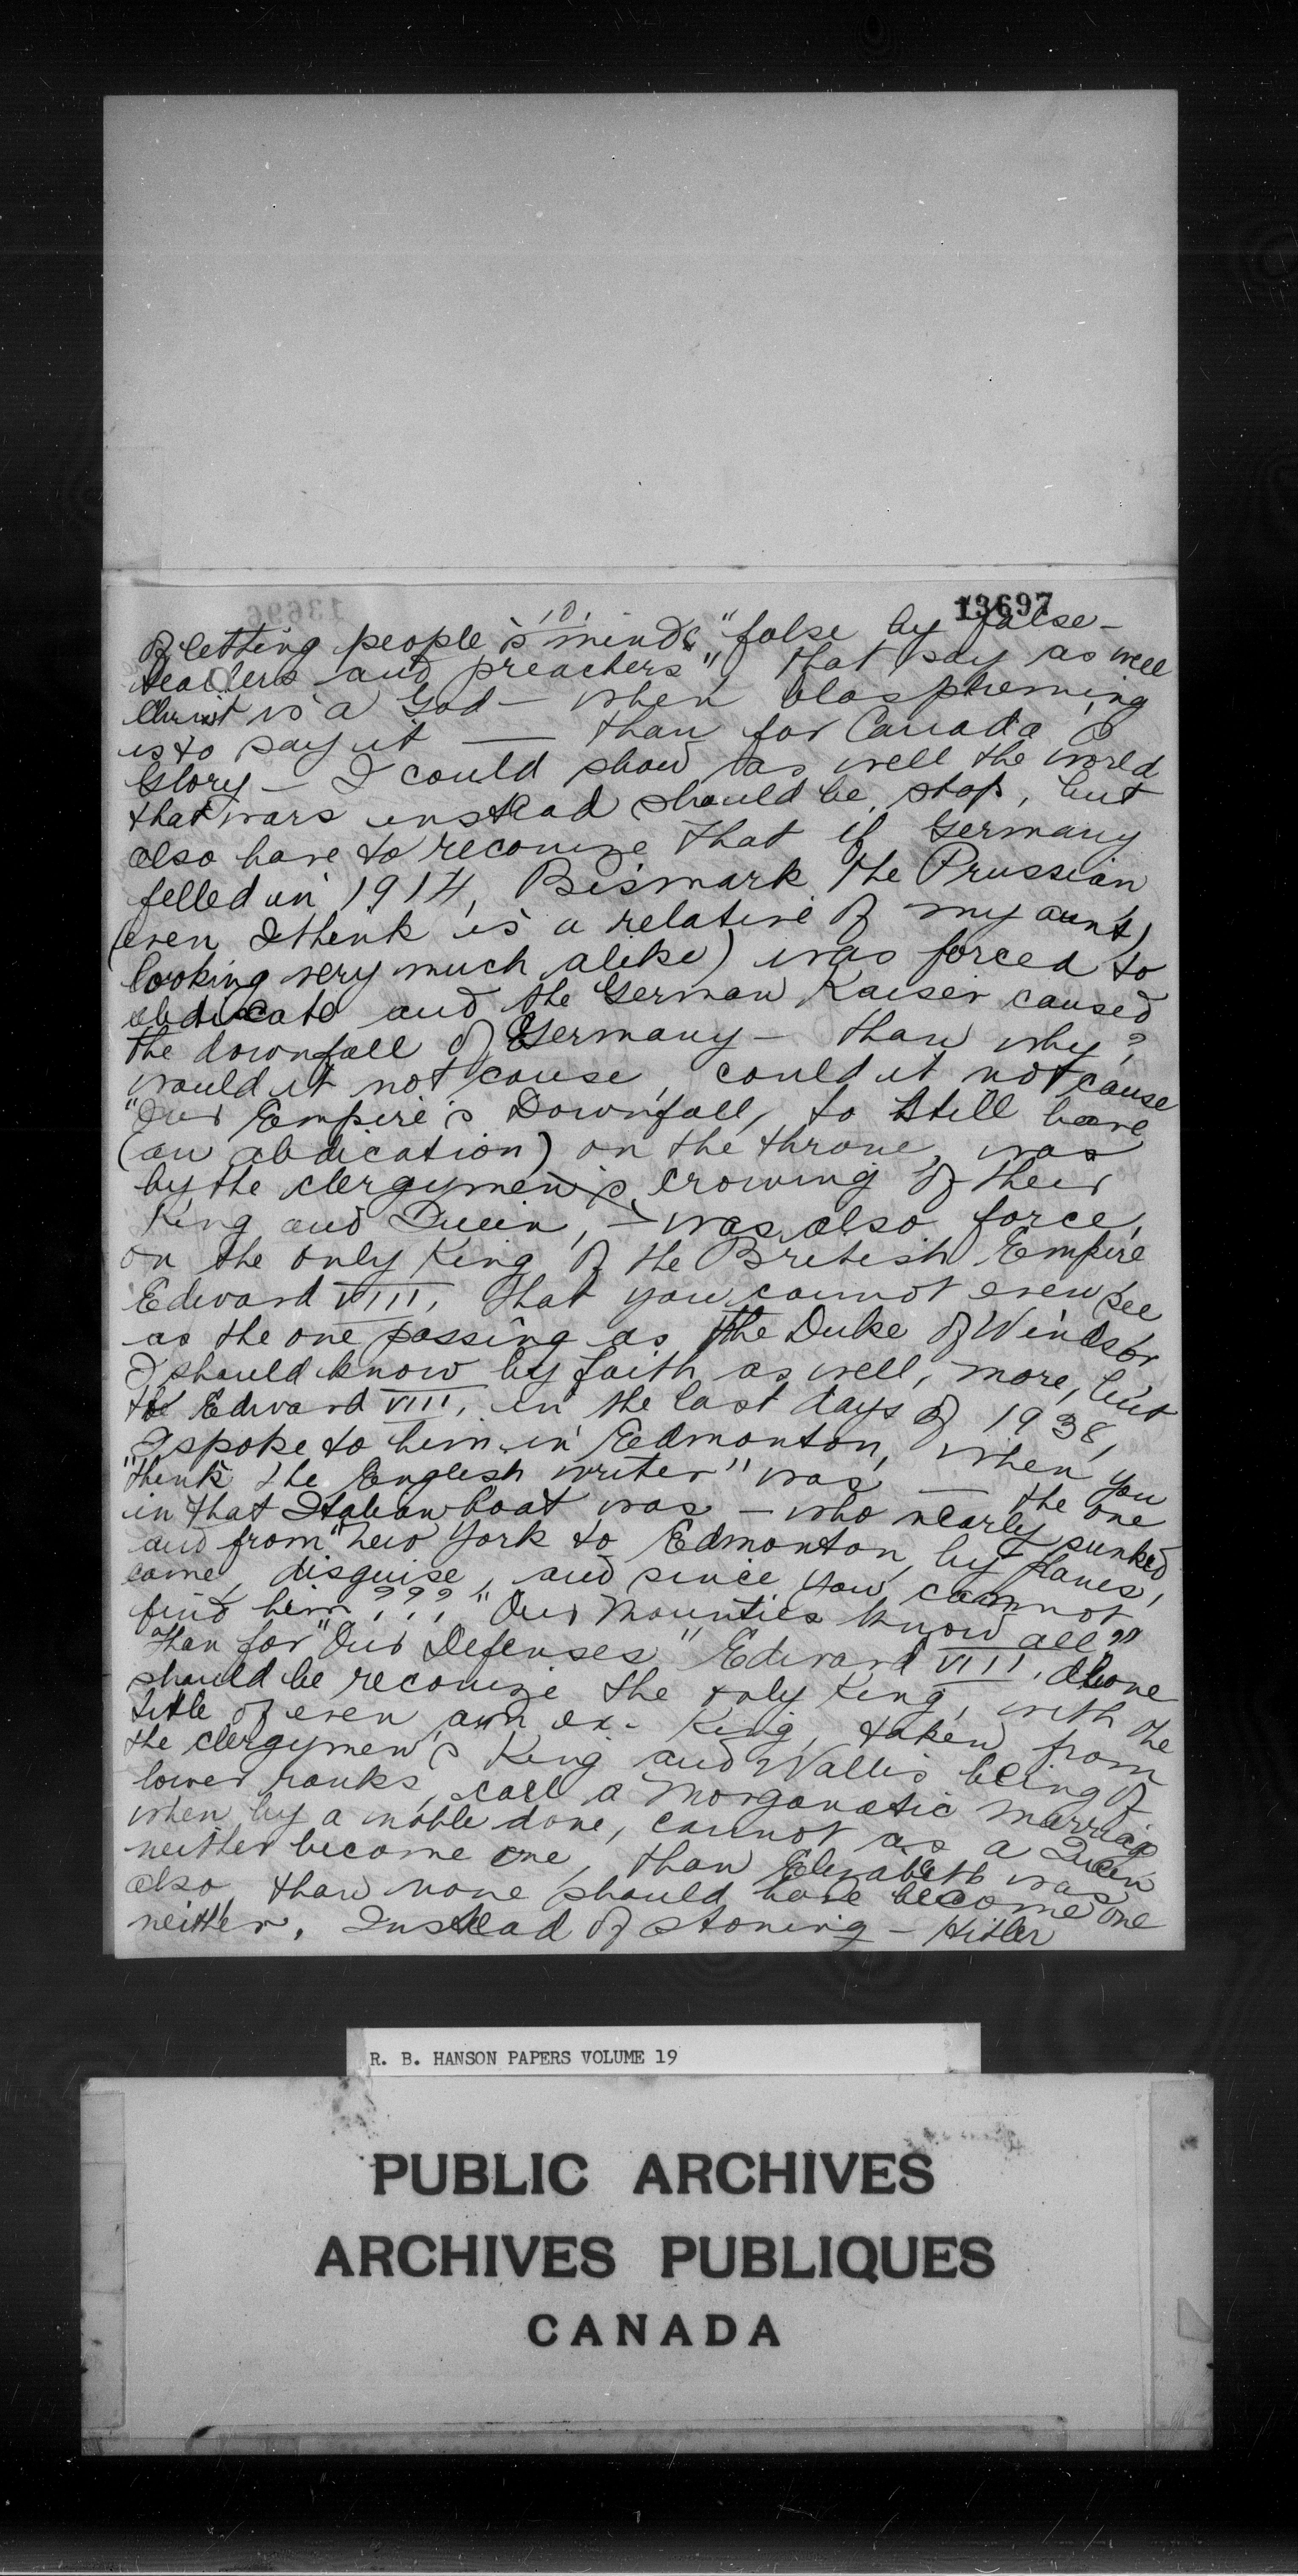 13697
10.
of letting people's minds "false by false-
teachers and preachers", that say as well
Christ is a God - when blaspheming
is to say it — than for Canada's
Glory - I could show as well the world
that wars instead should be stop, but
also have to reconize that if Germany
felled in 1914, Bismark the Prussian
(even I think is a relative of my aunt,
looking very much alike) was forced to
abdicate and the German Kaiser caused
the downfall of Germany - than why?
would it not cause, could it not cause
"Our Empire's Downfall, to still have
(an abdication) on the throne, was
by the clergymen's crowing of their
King and Queen, - was also force,
on the only King of the British Empire
Edward VIII, that you cannot even see
as the one passing as the Duke of Windsor
I should know by faith as well, more, but
the Edward VIII, in the last days of 1938,
I spoke to him in Edmonton, when you
"think the English writer" was — the one
in that Italian boat was - who nearly sunked
and from "New York to Edmonton, by planes,
came, disguise, and since you cannot
find him???, "Our Mounties know all"
than for "Our Defenses" Edward VIII, alone
should be reconize the only King, with the
title of even an ex-King, taken from
the clergymen's King and Wallis being of
lower ranks, call a Morganatic marriage
when by a noble done, cannot as a Queen
neither become one, than Elizabeth was
also, than none should have become one
neither. Instead of stoning - Hitler
R. B. HANSON PAPERS VOLUME 19
PUBLIC ARCHIVES
ARCHIVES PUBLIQUES
CANADA